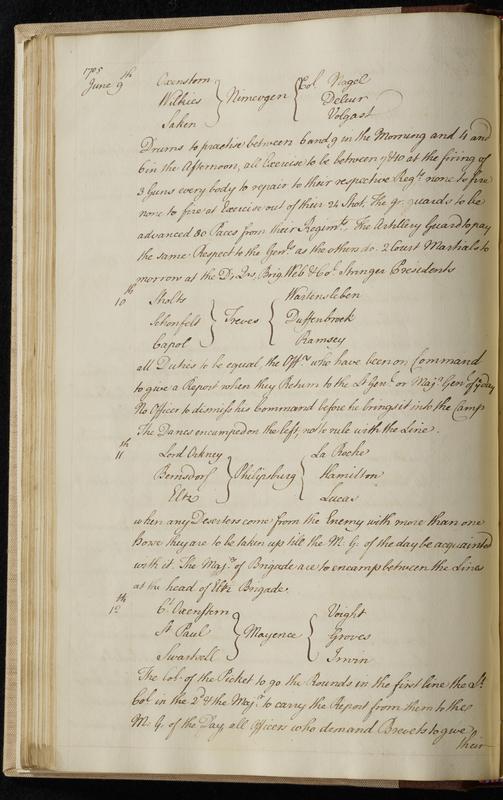 1705
June 9th Oxenstern Col Nagel
Wilkies } Nimeogen { Deleur
Saken Volgast
Drums to practise between 6 and 9 in the Morning and 4 and
6 in the Afternoon, all Exercise to be between 7 & 10 at the firing of
3 Guns every body to repair to their respective Regts none to fire
none to fire at Exercise out of their 24 Shot, The Qr. guards to be
advanced 80 Paces from their Regimts, The Artillery Guard to pay
the same Respect to the Genls as the others do. 2 Court Martials to
morrow at the Dr Qrs, Brig. Web & Col. Stringer Presidents
10th Sholts Wartensleben
Schonfelt } Treves { Duffenbroek
Capol Ramsey
all Duties to be equal, the Offrs who have been on Command
to give a Report when they Return to the Lt Genl or Majr Genl of ye day
No Officer to dismiss his Command before he brings it into the Camp
The Danes encamped on the left, no to rule with the Line.
11th Lord Orkney La Roche
Bernsdorf } Philipsburg { Hamilton
Eltz Lucas
when any Deserters come from the Enemy with more than one
horse they are to be taken up till the M. G. of the day be acquainted
with it. The Majrs of Brigade are to encamp between the Lines
at the head of Eltz Brigade.
12th Ct Oxenstern Voight
St Paul } Mayence { Groves
Swartzell Irwin
The Col. of the Picket to go the Rounds in the first line the Lt
Col in the 2d & the Majr to carry the Report from them to the
M. G. of the Day, all Officers who demand Brevets to give
their